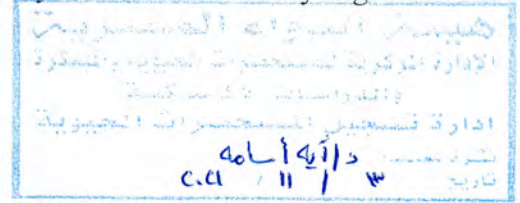 هيئة الدواء المصرية
الإدارة المركزية للمستحضرات الحيوية والمبتكرة
والدراسات الاكلينيكية
إدارة تسجيل المستحضرات الحيوية
نشرة معتمدة
د/آيه أسامه
تاريخ ٣ / ١١ / ٢٠٢١